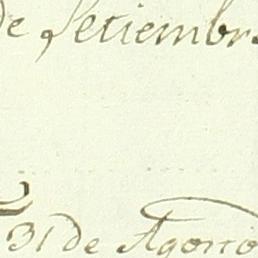 de Setiembr
31 de Agosto